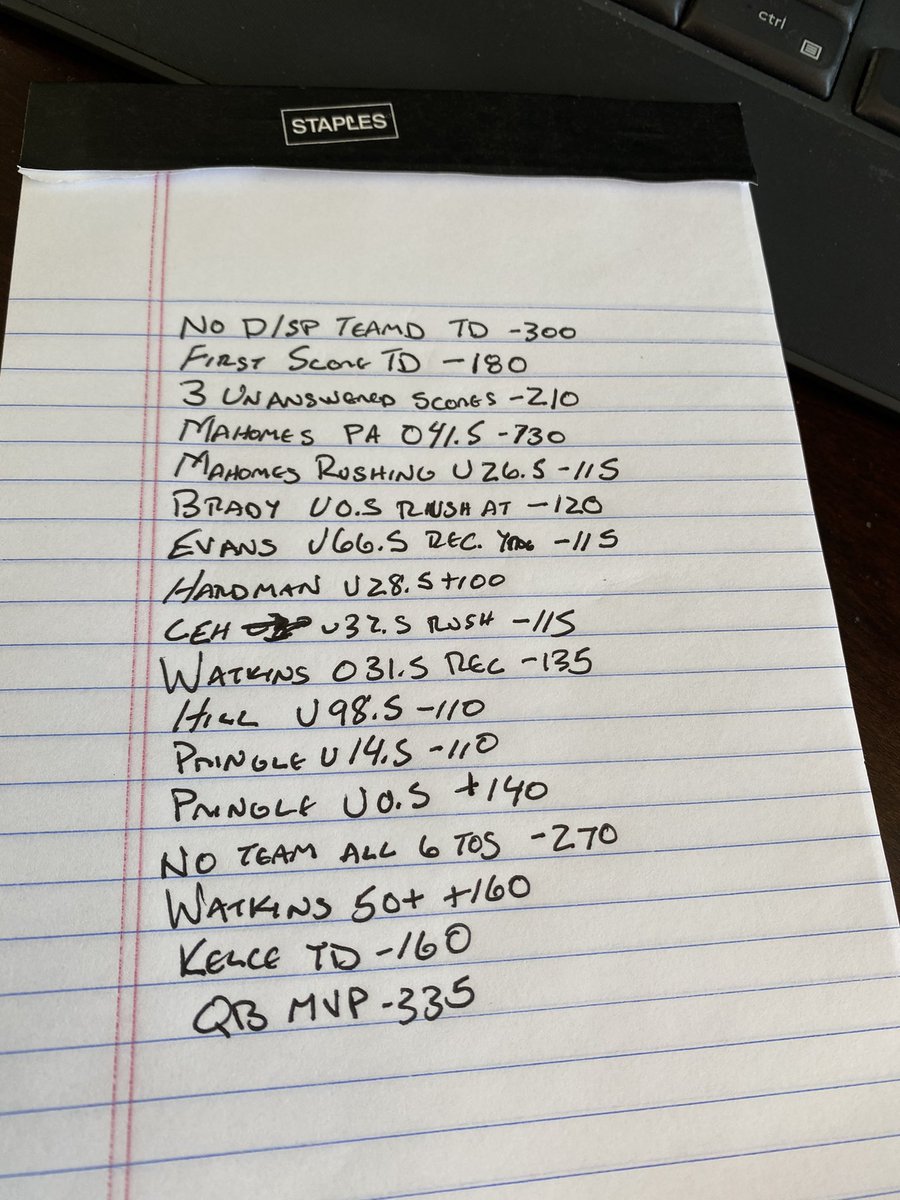 ctrl
STAPLES
NO D/SP TEAMD TD -300
FIRST SCORE TD -180
3 UNANSWERED SCORES -210
MAHOMES PA O41.5 -730
MAHOMES RUSHING U26.5 -115
BRADY U0.5 RUSH AT -120
EVANS U66.5 REC. YDS -115
HARDMAN U28.5 +100
CEH U32.5 RUSH -115
WATKINS O31.5 REC -135
HILL U98.5 -110
PRINGLE U14.5 -110
PRINGLE U0.5 +140
NO TEAM ALL 6 TOS -270
WATKINS 50+ +160
KELCE TD -160
QB MVP -335